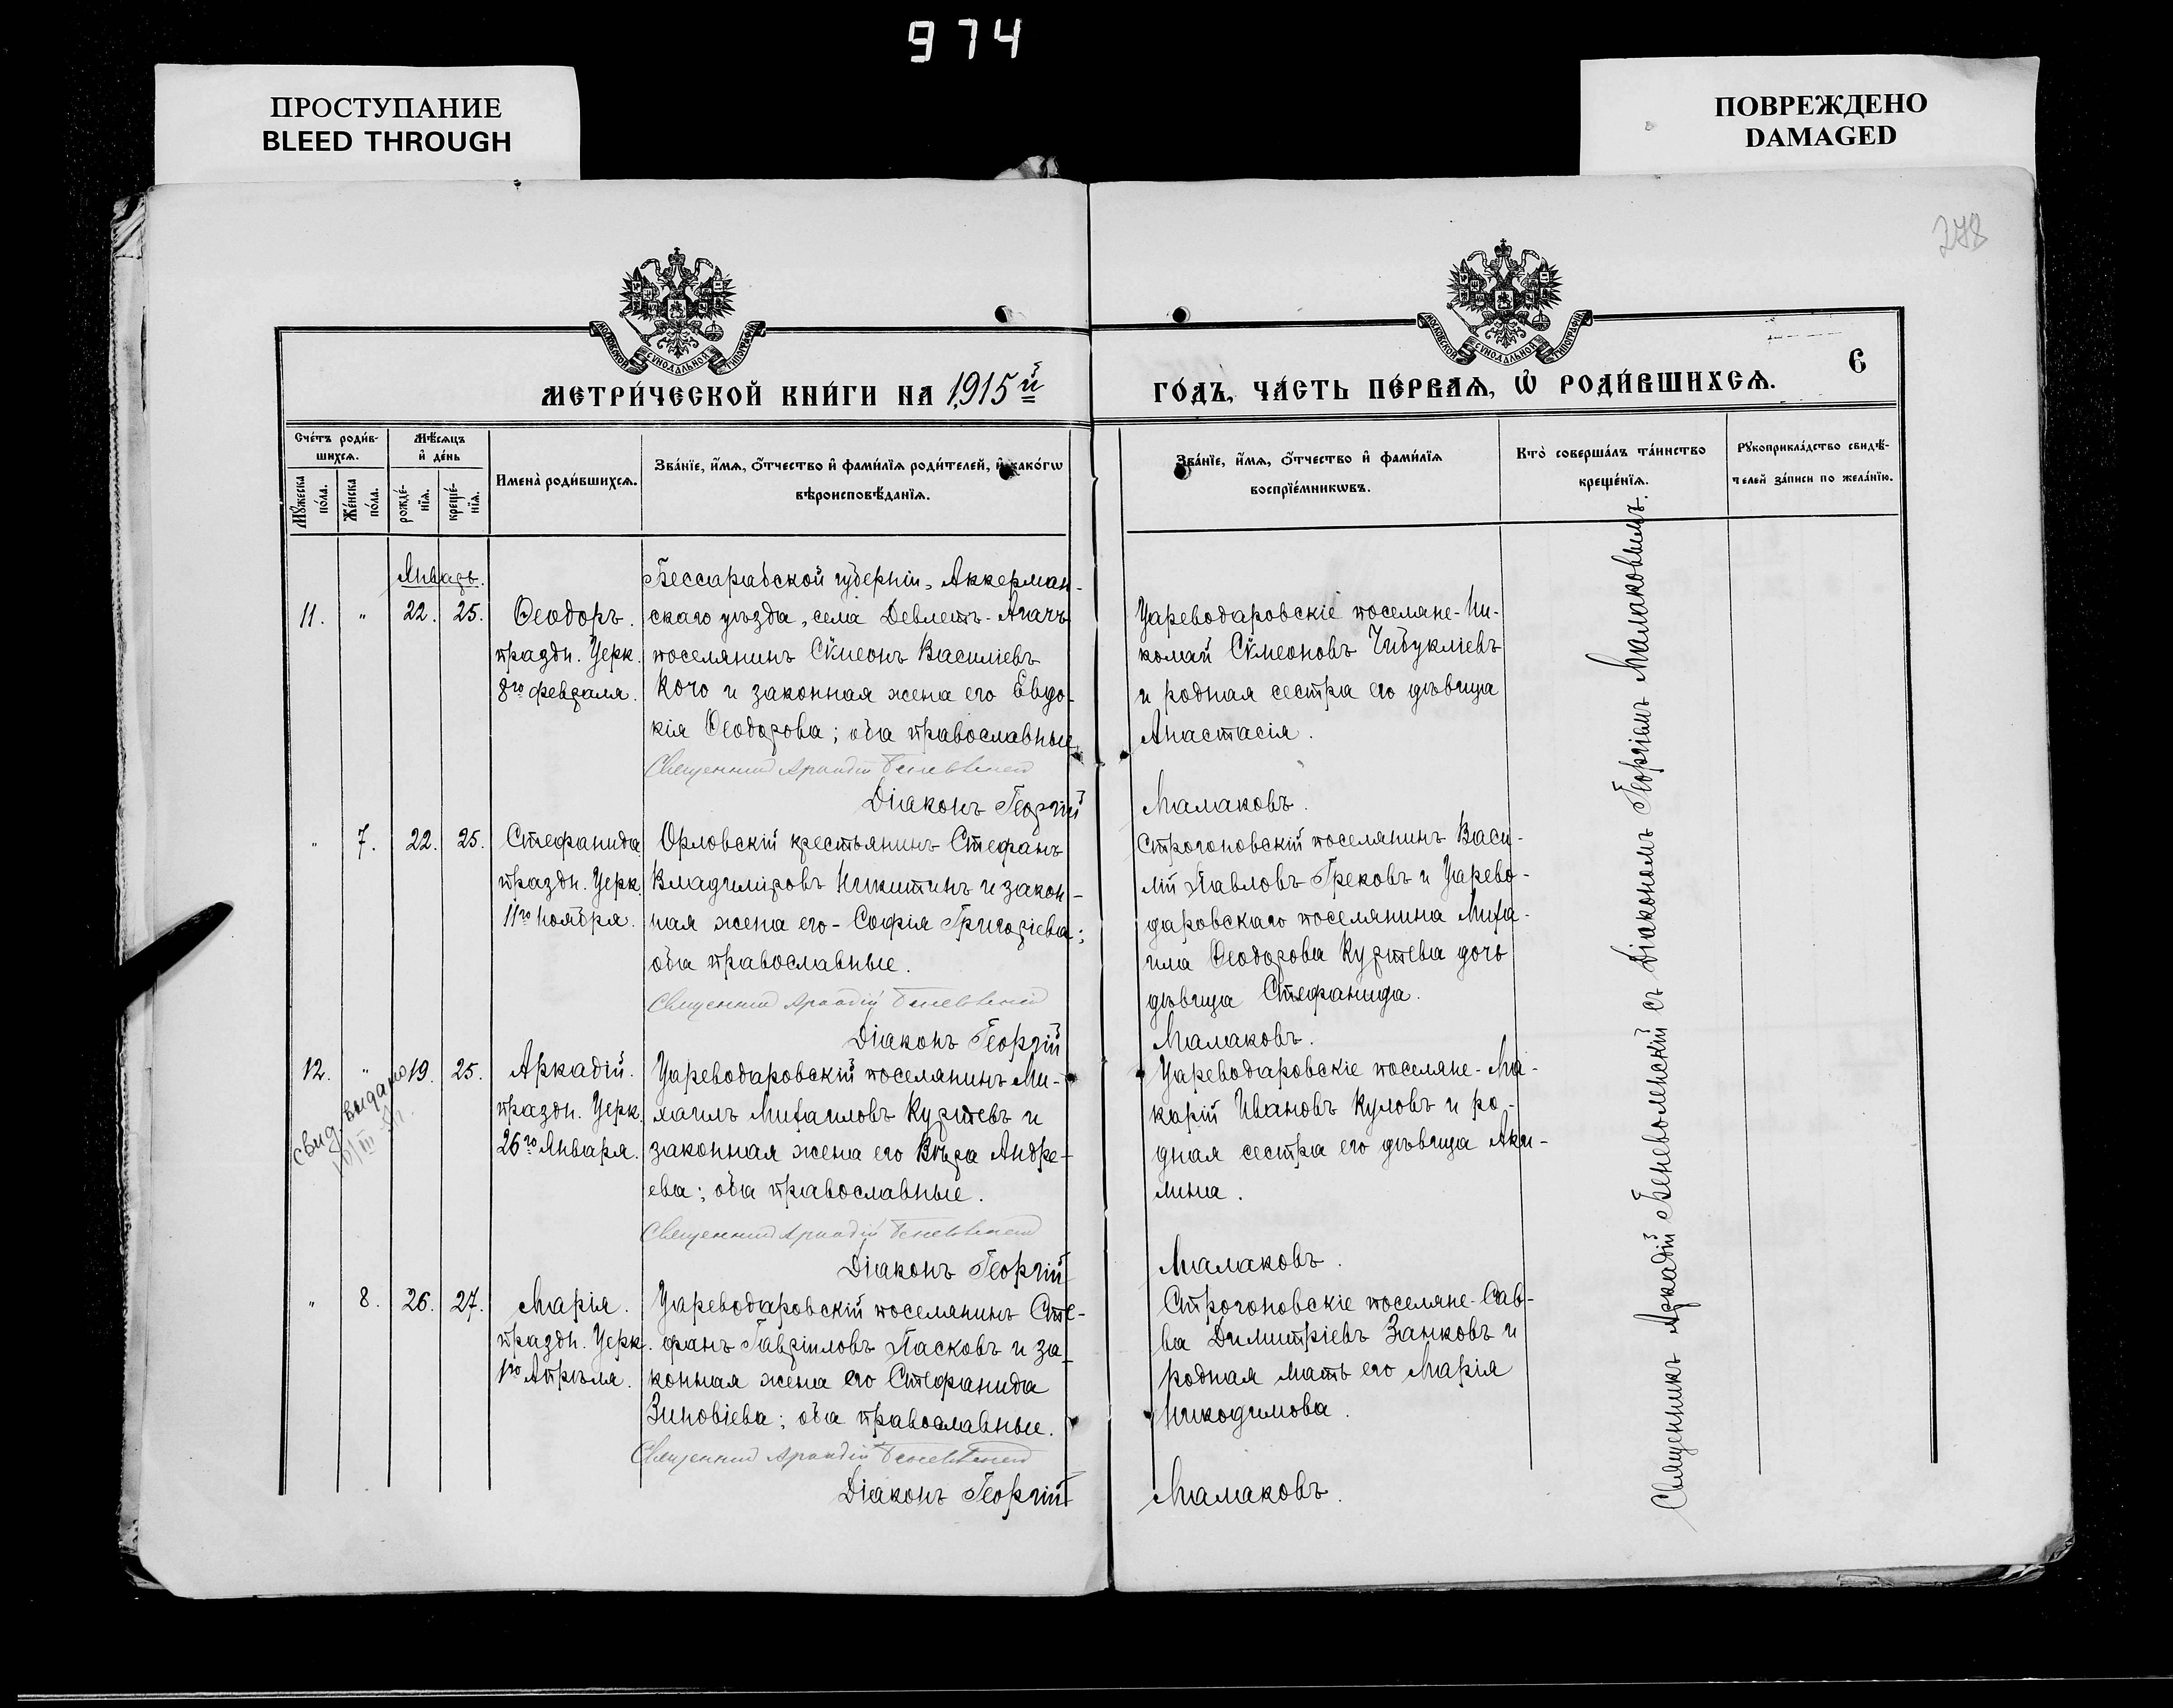 974
ПРОСТУПАНИЕ
BLEED THROUGH
ПОВРЕЖДЕНО
DAMAGED
278
МОСКОВСКОЙ СУНОДАЛЬНОЙ ТИПОГРАФІИ
МОСКОВСКОЙ СУНОДАЛЬНОЙ ТИПОГРАФІИ
МЕТРИ́ЧЕСКОЙ КНИ́ГИ НА 1915й
ГО́ДЪ, ЧА́СТЬ ПЕ́РВАѦ, Ѡ҆ РОДИ́ВШИХСѦ.
Є
Сче́тъ роди́в-
шихсѧ.
Мꙋ́жеска по́ла.
Же́нска по́ла.
Мѣ́сѧцъ
и҆ де́нь
рожде́-
нїѧ.
креще́-
нїѧ.
Имена̀ роди́вшихсѧ.
Зва́нїе, и҆́мѧ, ѻ҆́тчество и҆ фами́лїѧ роди́телей, и҆ како́гѡ
вѣроисповѣ́данїѧ.
Зва́нїе, и҆́мѧ, ѻ҆́тчество и҆ фами́лїѧ
воспрїе́мникѡвъ.
Кто̀ соверша́лъ та́инство
креще́нїѧ.
Рꙋкоприкла́дство свидѣ́-
телей за́писи по жела́нїю.
Январь.
11. " 22. 25.
Ѳеодоръ.
праздн. Церк.
8го февраля.
Бессарабской губерніи, Аккерман-
скаго уѣзда, села Девлетъ-Агачъ
поселянинъ Сѵмеонъ Василіевъ
Кочо и законная жена его Евдо-
кія Ѳеодорова; оба православные
Священник Аркадій Беневоленскій
Діаконъ Георгій
Цареводаровскіе поселяне-Ни-
колай Сѵмеоновъ Чибукліевъ
и родная сестра его дѣвица
Анастасія.
Малаковъ.
" 7. 22. 25.
Стефанида
праздн. Церк.
11го ноября.
Орловскій крестьянинъ Стефанъ
Владиміровъ Никитинъ и закон-
ная жена его-Софія Григоріева;
оба православные.
Священник Аркадій Беневоленскій
Діаконъ Георгій
Строгоновскій поселянинъ Васи-
лій Павловъ Грековъ и Царево-
даровскаго поселянина Миха-
ила Ѳеодорова Куртева дочь
дѣвица Стефанида.
Малаковъ.
12. " 19. 25.
свид. выдано
Аркадій.
праздн. Церк.
26го Января.
Цареводаровскій поселянинъ Ми-
хаилъ Михаиловъ Куртевъ и
законная жена его Вѣра Андре-
ева; оба православные.
Священник Аркадій Беневоленскій
Діаконъ Георгій
Цареводаровскіе поселяне-Ма-
карій Ивановъ Куловъ и ро-
дная сестра его дѣвица Аки-
лина.
Малаковъ.
" 8. 26. 27.
Марія.
праздн. Церк.
1го Апрѣля.
Цареводаровскій поселянинъ Сте-
фанъ Гавріиловъ Пасковъ и за-
конная жена его Стефанида
Зиновіева; оба православные.
Священник Аркадій Беневоленскій
Діаконъ Георгій
Строгоновскіе поселяне-Сав-
ва Димитріевъ Занковъ и
родная мать его Марія
Никодимова.
Малаковъ.
Священникъ Аркадій Беневоленскій съ Діакономъ Георгіемъ Малаковымъ.